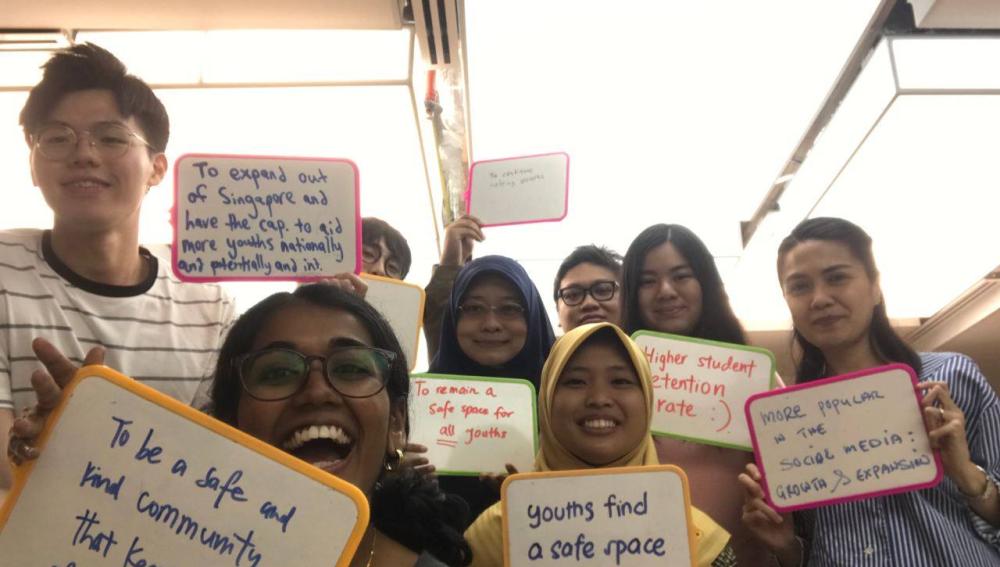 To expand out
of Singapore and
have the cap. to aid
more youths nationally
and potentially and int.
To continue
To remain a
safe space for
all youths
Higher student
etention
rate :)
MORE POPULAR
IN THE
SOCIAL MEDIA :
GROWTH & EXPANSION
To be a safe and
kind community
that
youths find
a safe space